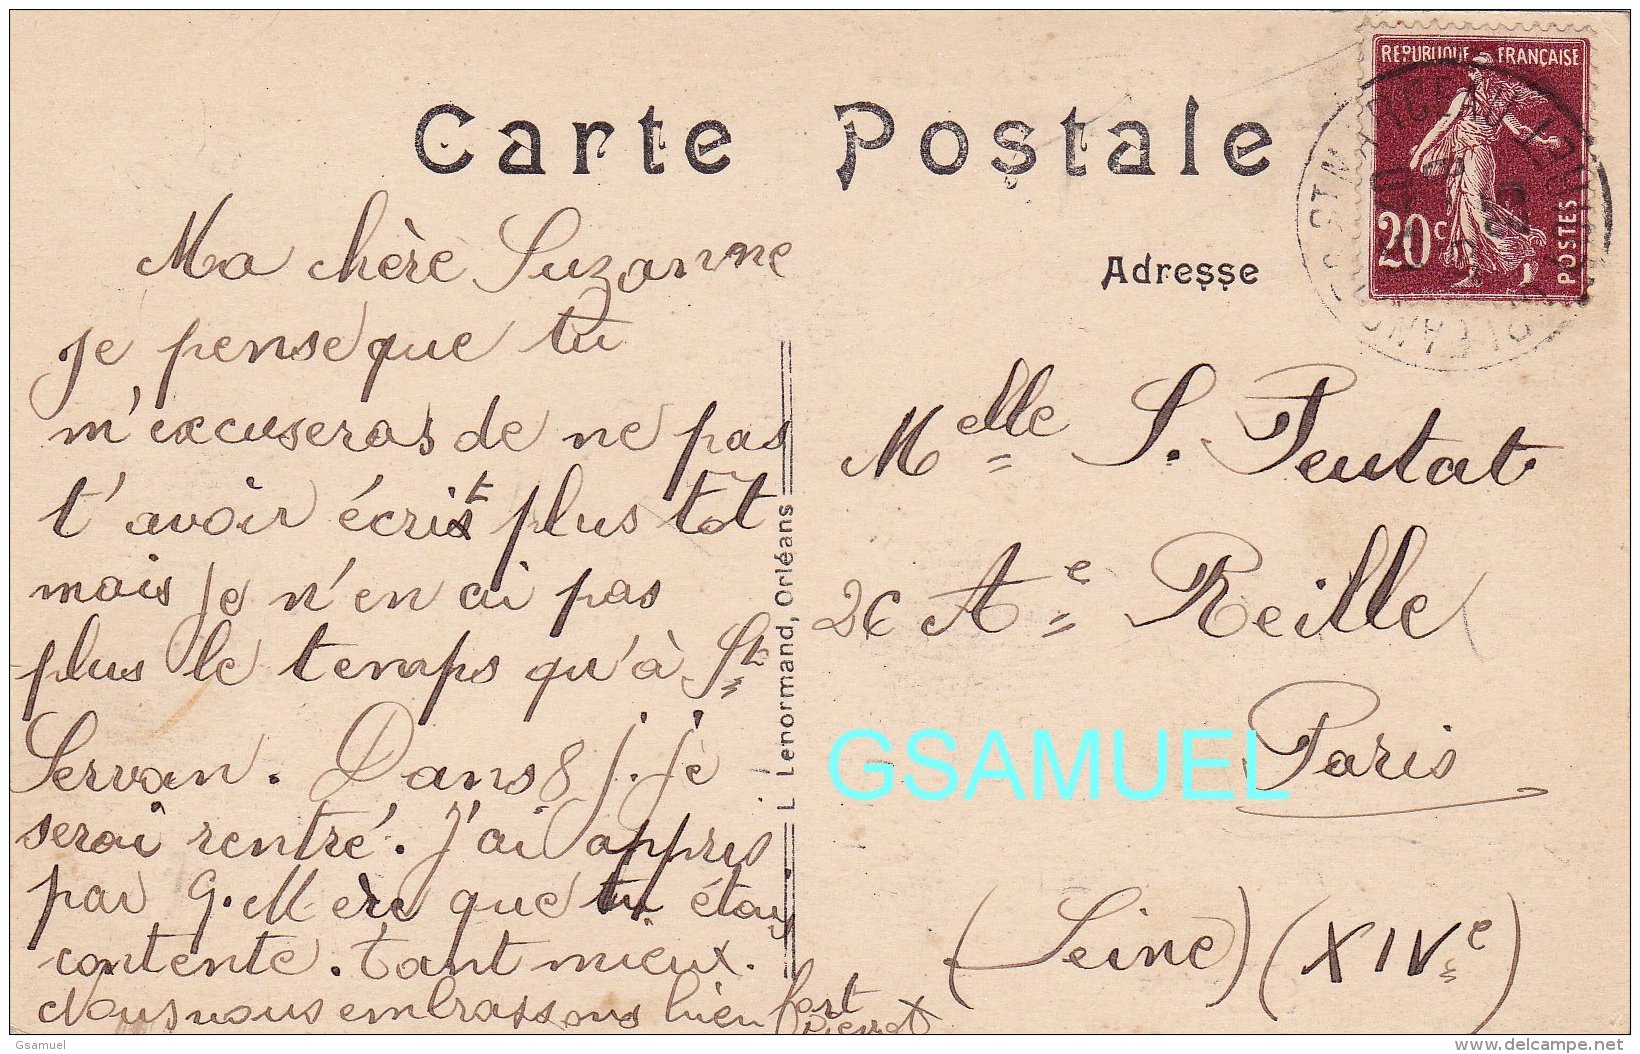 Carte Postale
RÉPUBLIQUE FRANÇAISE
20c
POSTES
Adresse
Ma chère Suzanne
je pense que tu
m'excuseras de ne pas
t'avoir écrit plus tôt
mais je n'en ai pas
plus le temps qu'à St
Servan. Dans 8 j. je
serai rentré. J'ai appris
par G. Mère que tu étais
contente. tant mieux.
Nous vous embrassons bien fort
Pierrot
L. Lenormand, Orléans
Melle S. Peutat
Ae Reille
Paris
(Seine) (XIVe)
GSAMUEL
Gsamuel
www.delcampe.net